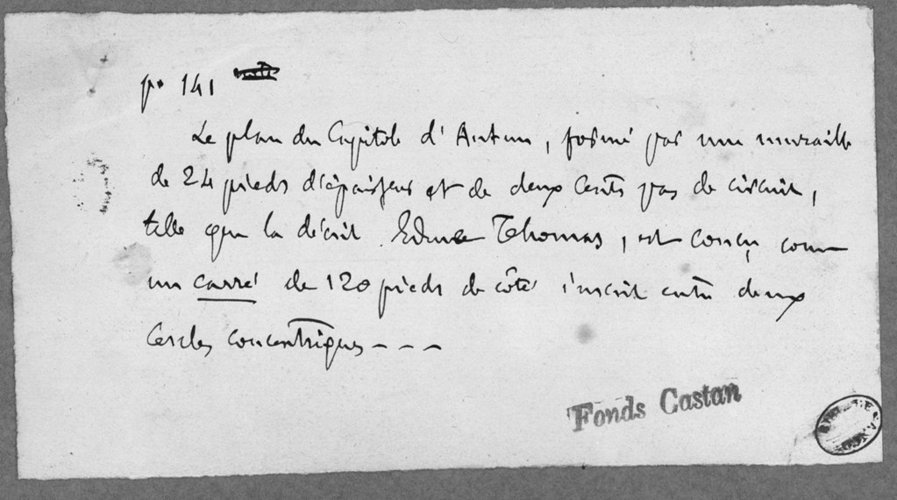 p. 141
Le plan du Capitole d'Autun, formé par une muraille
de 24 pieds d'épaisseur et de deux cents pas de circuit,
telle que la décrit Edme Thomas, est conçu comme
un carré de 120 pieds de côté inscrit entre deux
cercles concentriques - - -
Fonds Castan